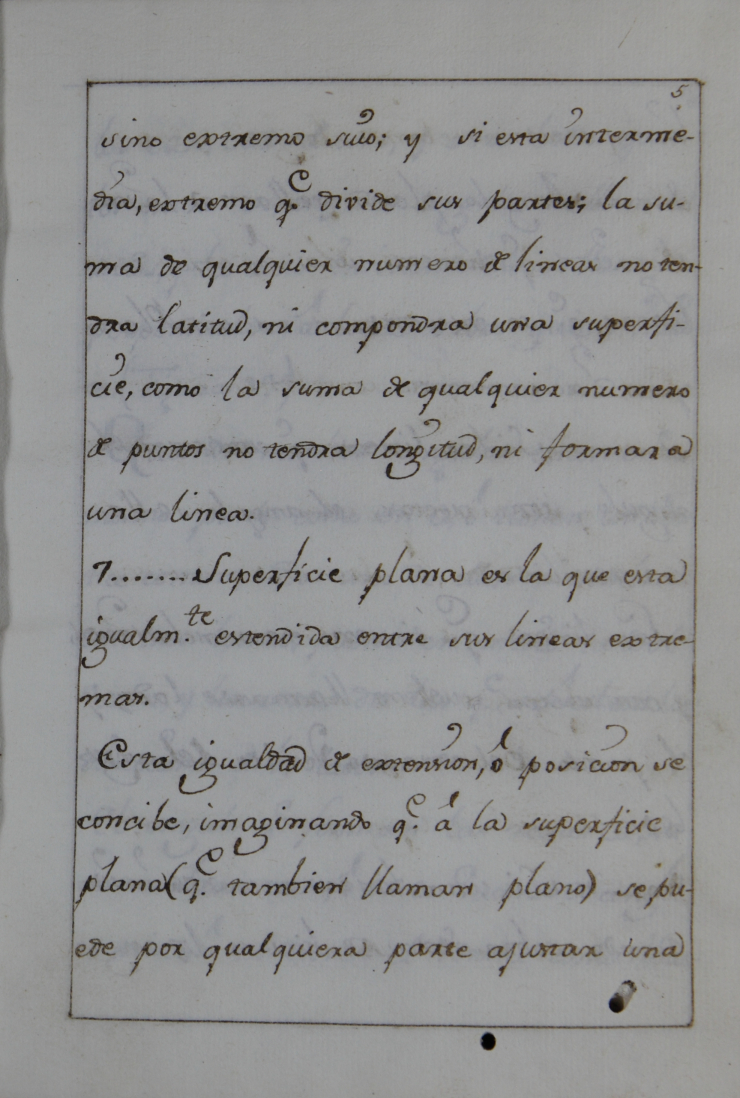 5
sino extremo suio; y si esta interme-
dia, extremo q.e divide sus partes; la su-
ma de qualquier numero de lineas no ten-
dra latitud, ni compondra una superfi-
cie, como la suma de qualquier numero
de puntos no tendra longitud, ni formara
una linea.
7....... Superficie plana es la que esta
igualm.te estendida entre sus lineas extre-
mas.
Esta igualdad de extension, ó posicion se
concibe, imaginando q.e á la superficie
plana (q.e tambien llaman plano) se pu-
ede por qualquiera parte ajustar una